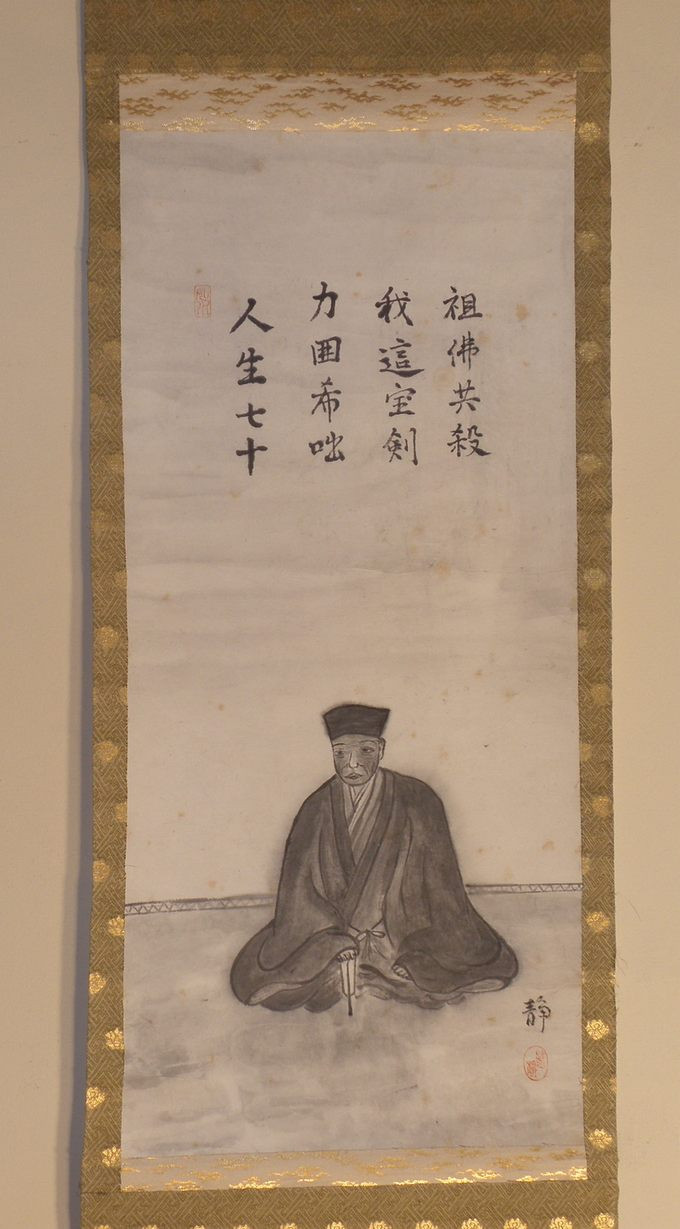 人生七十
力囲希咄
我這宝剣
祖佛共殺
静